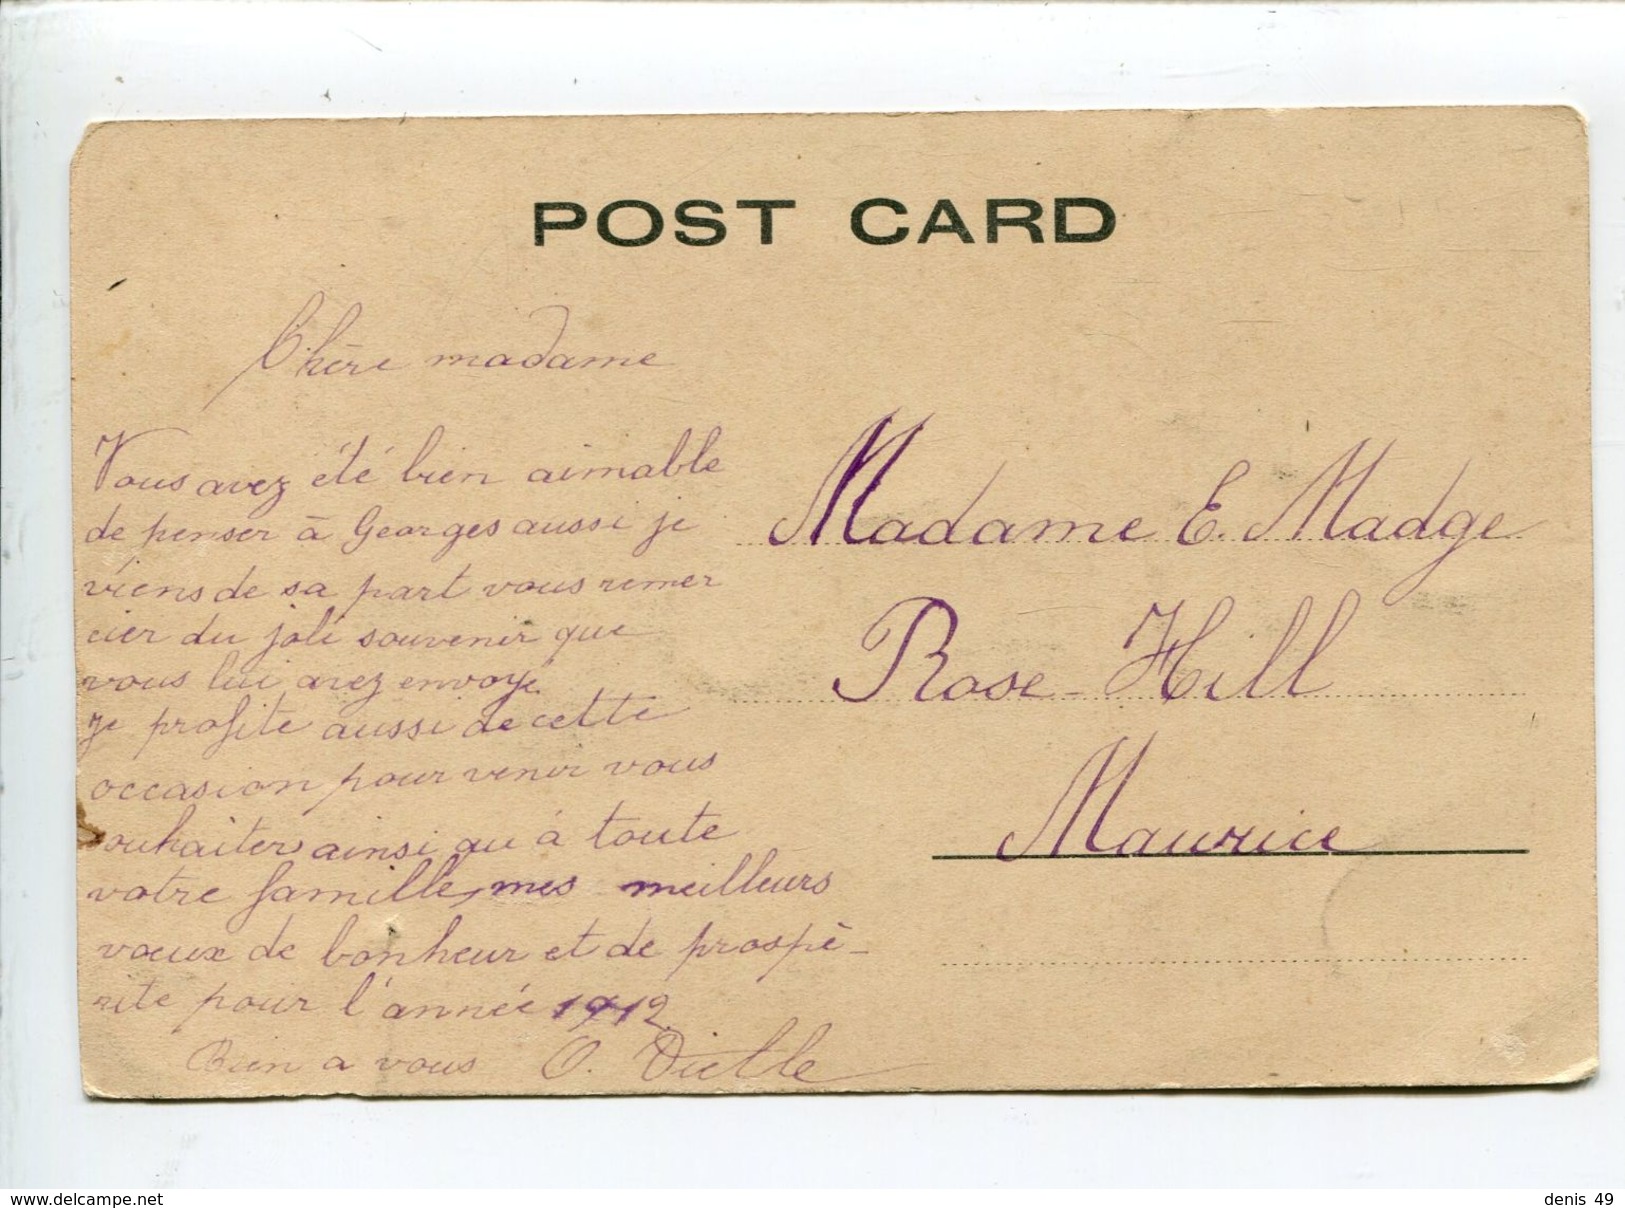 POST CARD
Chère madame
Vous avez été bien aimable
de penser à Georges aussi je
viens de sa part vous remer
cier du joli souvenir que
vous lui avez envoyé.
Je profite aussi de cette
occasion pour venir vous
souhaiter ainsi qu'à toute
votre famille, mes meilleurs
voeux de bonheur et de prospé-
rité pour l'année 1912.
Bien a vous O.
Madame E. Madge
Rose-Hill
Maurice
www.delcampe.net
denis 49